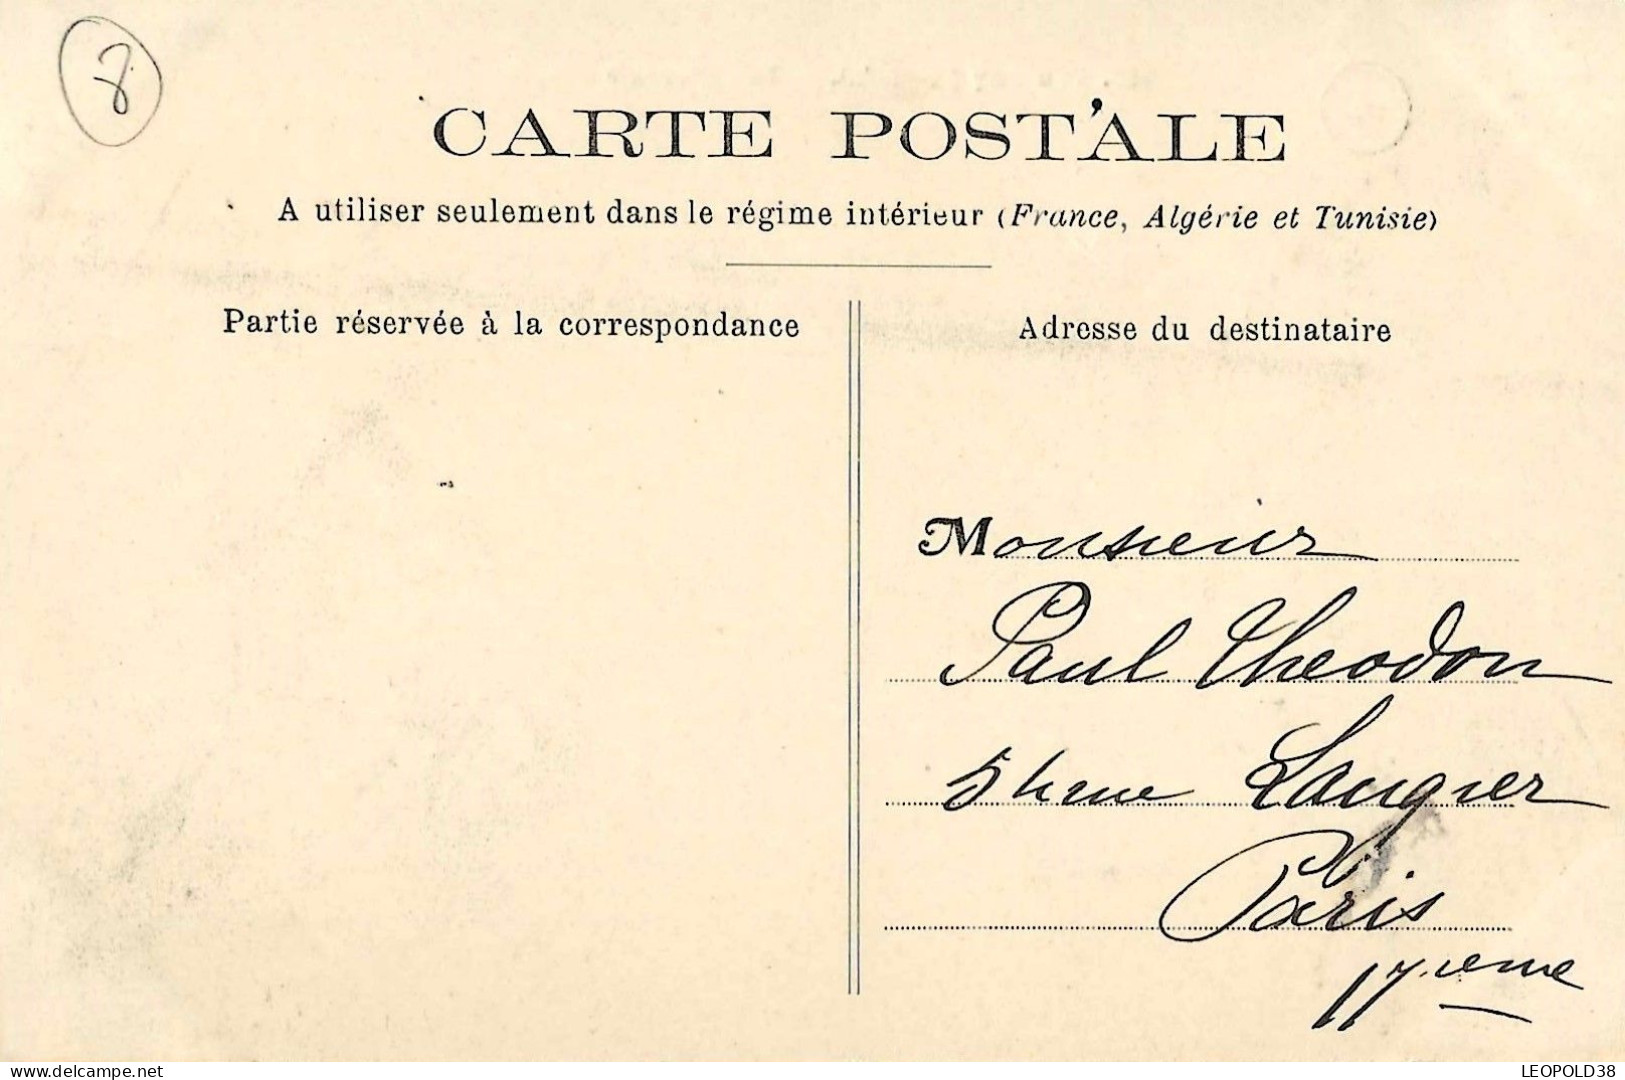 8
CARTE POSTALE
A utiliser seulement dans le régime intérieur (France, Algérie et Tunisie)
Partie réservée à la correspondance
Adresse du destinataire
Monsieur
Paul Theodon
Laugier
Paris
17ieme
www.delcampe.net
LEOPOLD38